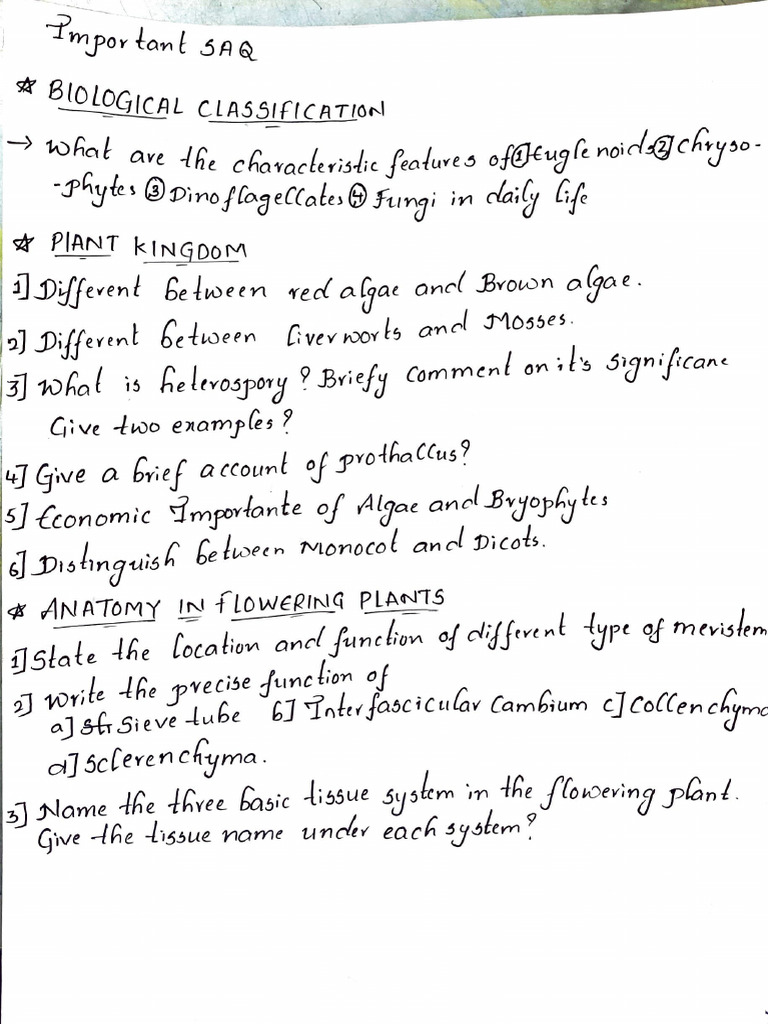 Important SAQ
☆ BIOLOGICAL CLASSIFICATION
→ What are the characteristic features of ① Euglenoids ② Chryso-
-phytes ③ Dinoflagellates ④ Fungi in daily life
☆ PlANT KINGDOM
1] Different between red algae and Brown algae.
2] Different between liverworts and Mosses.
3] What is heterospory? Briefy comment on it's significane
Give two examples?
4] Give a brief account of prothallus?
5] Economic Importante of Algae and Bryophytes
6] Distinguish between Monocot and Dicots.
☆ ANATOMY IN FLOWERING PLANTS
1] State the location and function of different type of meristem
2] Write the precise function of
a] Sieve tube b] Interfascicular Cambium c] Collenchyma
d] Sclerenchyma.
3] Name the three basic tissue system in the flowering plant.
Give the tissue name under each system?